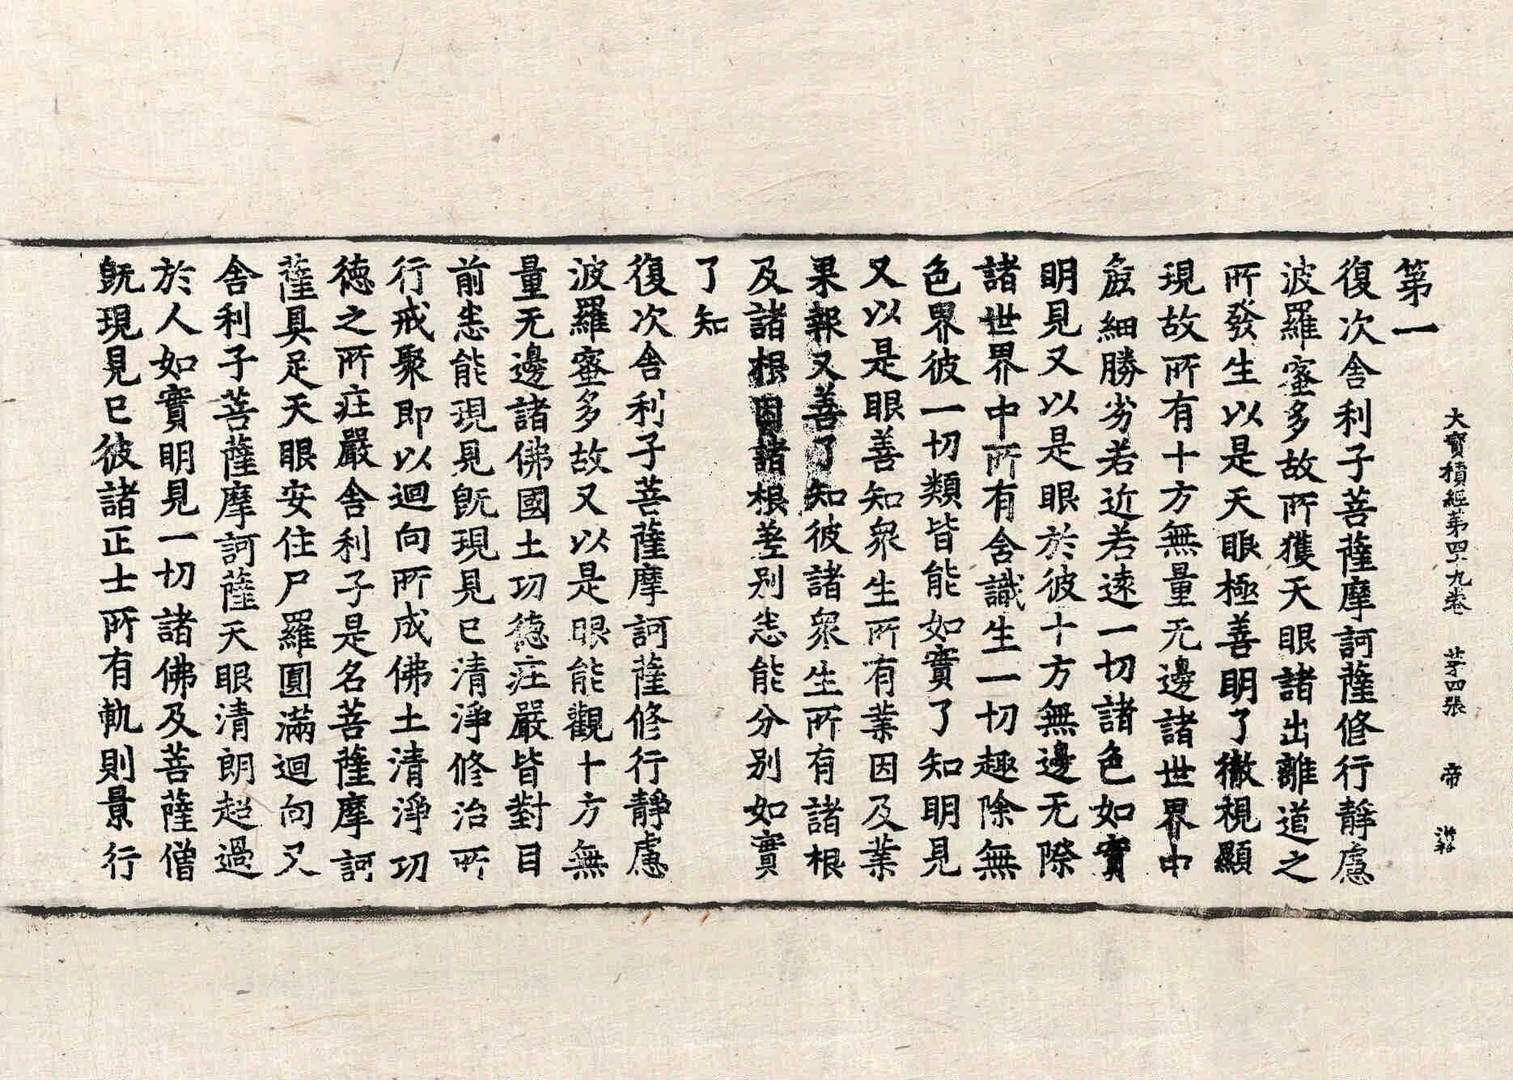 大寶積經第四十九卷　第四張　帝
第一
復次舍利子菩薩摩訶薩修行靜慮
波羅蜜多故所獲天眼諸出離道之
所發生以是天眼極善明了徹視顯
現故所有十方無量无邊諸世界中
麁細勝劣若近若遠一切諸色如實
明見又以是眼於彼十方無邊无際
諸世界中所有含識生一切趣除無
色界彼一切類皆能如實了知明見
又以是眼善知衆生所有業因及業
果報又善了知彼諸衆生所有諸根
及諸根因諸根差別悉能分別如實
了知
復次舍利子菩薩摩訶薩修行靜慮
波羅蜜多故又以是眼能觀十方無
量无邊諸佛國土功德莊嚴皆對目
前悉能現見旣現見已清淨修治所
行戒聚即以迴向所成佛土清淨功
德之所莊嚴舍利子是名菩薩摩訶
薩具足天眼安住尸羅圓滿迴向又
舍利子菩薩摩訶薩天眼清朗超過
於人如實明見一切諸佛及菩薩僧
旣現見已彼諸正士所有軌則景行